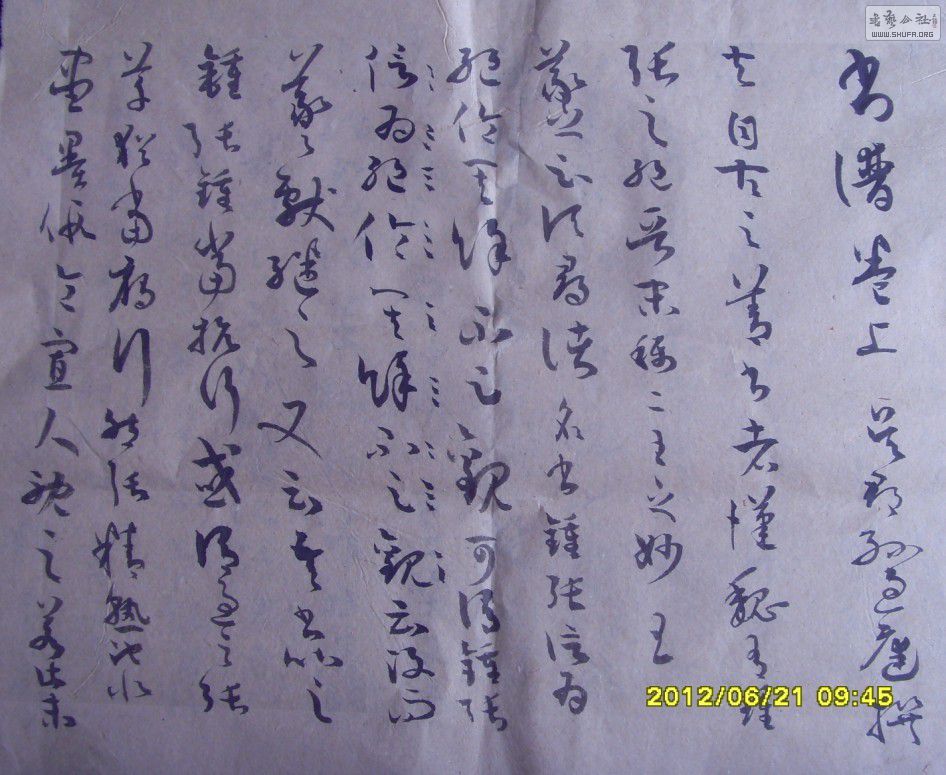 書譜卷上 吳郡孫過庭撰
夫自古之善書者漢魏有鍾
張之絕晉末稱二王之妙王
羲之云頃尋諸名書鍾張信為
絕倫其餘不足觀可謂鍾張
信為絕倫其餘不足觀云沒而
羲獻繼之又云吾書比之
鍾張鍾當抗行或謂過之張
草猶當雁行然張精熟池水
盡墨假令寡人耽之若此未
書藝公社
WWW.SHUFA.ORG
2012/06/21 09:45